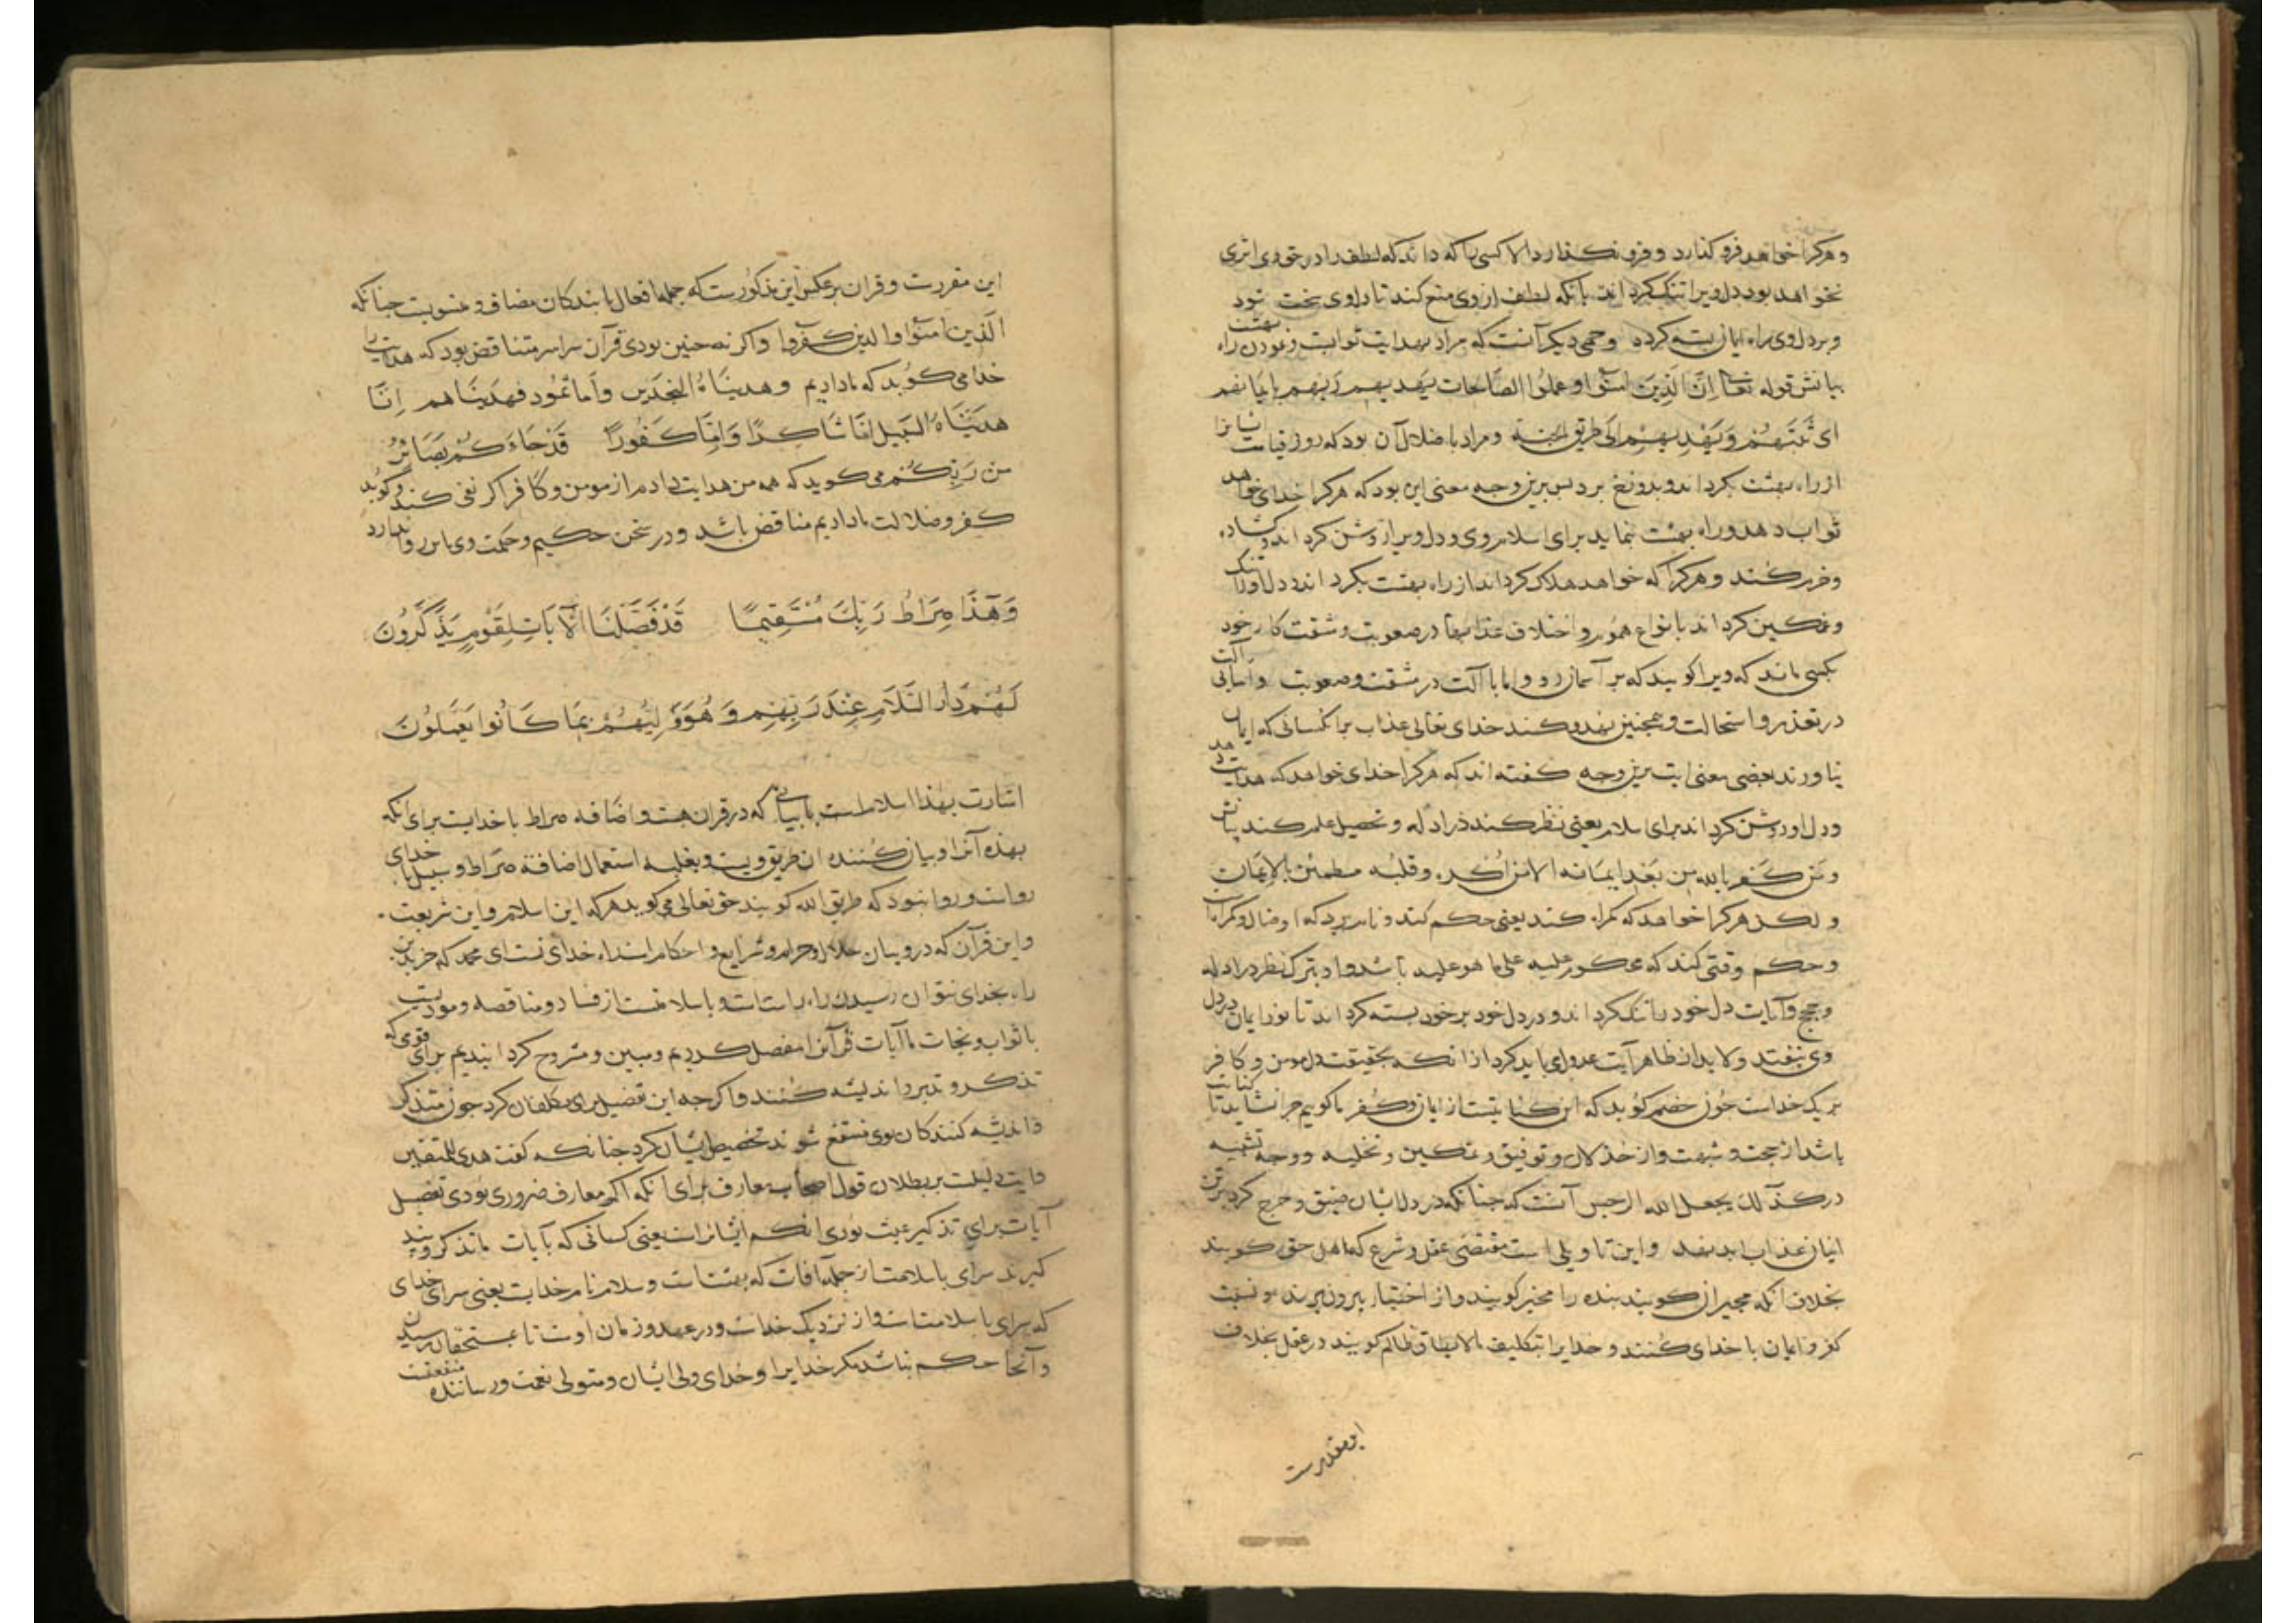 و هرکرا خواهد فرو کذارد و فرو نکذارد الا کسی را که داند که لطف را در حق وی اثری
نخواهد بود دل ویرا تنک کرداند بانکه لطف از وی منع کند تا دل وی سخت شود
و بر دل وی راه ایمان بسته کردد وجهی دیکر آنست که مراد بهدایت ثوابست و نمودن راه بهشت
بیانش قوله تعا اِنَّ الَّذِینَ امَنُوا وعملوا الصَّالحات یَهدیهم رَبهم بایمانهم
ای یُثَبّتهُمْ وَیَهْدِیهِمْ اِلَی طریق الجنة و مراد باضلال آن بود که روز قیامت ایشانرا
از راه بهشت بکرداند و بدوزخ برد پس برین وجه معنی این بود که هرکرا خدای خواهد
ثواب دهد و راه بهشت نماید برای اسلام وی و دل ویرا روشن کرداند و کشاده
و خرم کند و هرکرا که خواهد هلاک کرداند از راه بهشت بکرداند دل او را تنک
و غمکین کرداند بانواع هموم و اختلاف عذابها در صعوبت و مشقت کار خود
بکسی ماند که ویرا کویند که بر آسمان رو و اما با آلت در مشقت وصعوبت و اما بی آلت
در تعذر و استحالت و همچنین نهد و کند خدای تعالی عذاب بر انکسانی که ایمان
نیاورند بعضی معنی ایت برین وجه کفته اند که هرکرا خدای خواهد که هدایت دهد
و دل او روشن کرداند برای اسلام یعنی نظر کند در ادله و تحصیل علم کند بیانش
و مَن کَفَرَ بالله من بَعْد ایمانه الا من اُکْرِه وقلبُه مطمئن بالاِیمَان
و لکن هرکرا خواهد که کمراه کند یعنی حکم کند و نام برد که او ضال و کمراه است
و حکم وقتی کند که محکوم علیه علی ما هو علیه باشد و او بترک نظر در ادله
و حجج و آیات دل خود را تنک کرداند و در دل خود بر خود بسته کرداند تا نور ایمان در دل
وی نیفتد ولابد از ظاهر آیت عدولی باید کرد از انکه بحقیقت دل مومن و کافر
نزدیک خداست چون خصم کوید که این کنایتست از ایمان و کفر ما کوییم چرا نشاید تا کنایت
باشد از حجت و شبهت و از خذلان و توفیق و تمکین و تخلیه و وجه تشبیه
در کذآلک یجعل الله الرجس آنست که چنانکه در دل ایشان ضیق و حرج کرد برین
ایشان عذاب ابد نهد و این تاویلی است مقتضی عقل و شرع که اهل حق کویند
بخلاف آنکه مجبران کویند بنده را مجبر کویند و از اختیار بیرون برند و نسبت
کفر و ایمان با خدای کنند و خدایرا بتکلیف مالایطاق ظالم کویند در عقل بخلاف
این مقررست
این مقررست و قران برعکس این مذکورست که جمله افعال با بندکان مضاف و منسوبست چنانکه
الَّذین امنُوا والذین کَفَروا واکر نه چنین بودی قرآن سراسر متناقض بود که هدایت را
خدا می کوید که ما دادیم و هدیناهُ النجدَین وَاَما ثمود فهدَیناهم اِنَّا
هدَیْنَاهُ السَّبیل اِمَّا شَاکِرًا وَاِمَّا کَفُورًا قَدْ جَاءَکُمْ بَصَائِرُ
من رَبِّکُمْ می کوید که همه من هدایت دادم از مومن و کافر اکر نفی کند و کوید
کفر و ضلالت ما دادیم مناقض باشد و در سخن حکیم و حکمت وی این روا ندارد
وَهَذَا صِرَاطُ رَبِّكَ مُسْتَقِیمًا قَدْ فَصَّلْنَا الْآیَاتِ لِقَوْمٍ یَذَّکَّرُونَ
لَهُمْ دَارُ السَّلَامِ عِنْدَ رَبِّهِمْ وَهُوَ وَلِیُّهُمْ بِمَا کَانُوا یَعْمَلُونَ
اشارت بهذا اسلامست یا بیانی که در قران هست و اضافه صراط با خدایست برای انکه
نهنده آنرا و بیان کننده ان طریق ویست و بغلبه استعمال اضافة صراط و سبیل با خدای
رواست و روا نبود که طریق الله کویند حق تعالی می کوید هرکه این اسلام و این شریعت
و این قرآن که درو بیان حلال و حرام و شرایع و احکام است راه خدای تست ای محمد که جز بدین
راه بخدای نتوان رسیدن راه راستست و با سلامتست از فساد و مناقصه و مودیست
با ثواب و نجات ما آیات قرآنرا مفصل کردیم و مبین و مشروح کردانیدیم برای قومی که
تذکر و تدبر و اندیشه کنند و اکرچه این تفصیل برای مکلفان کرد چون متذکر
و اندیشه کنندکان بوی منتفع شوند تخصیص ایشان کرد چنانکه کفت هدی للمتقین
و ایت دلیلست بر بطلان قول اصحاب معارف برای انکه اکر معارف ضروری بودی تفصیل
آیات برای تذکیر عبث بودی انکه ایشانراست یعنی کسانی که بآیات ما تذکر و پند
کیرند سرای با سلامت از جمله آفات که بهشتست و سلام نام خدایست یعنی سرای خدای
که سرای با سلامتست و از نزدیک خداست و در عهد و زمان اوست تا بمستحقان رسیدن
و آنجا حکم نباشد مکر خدایرا و خدای ولی ایشان و متولی نعمت و رساننده منفعت